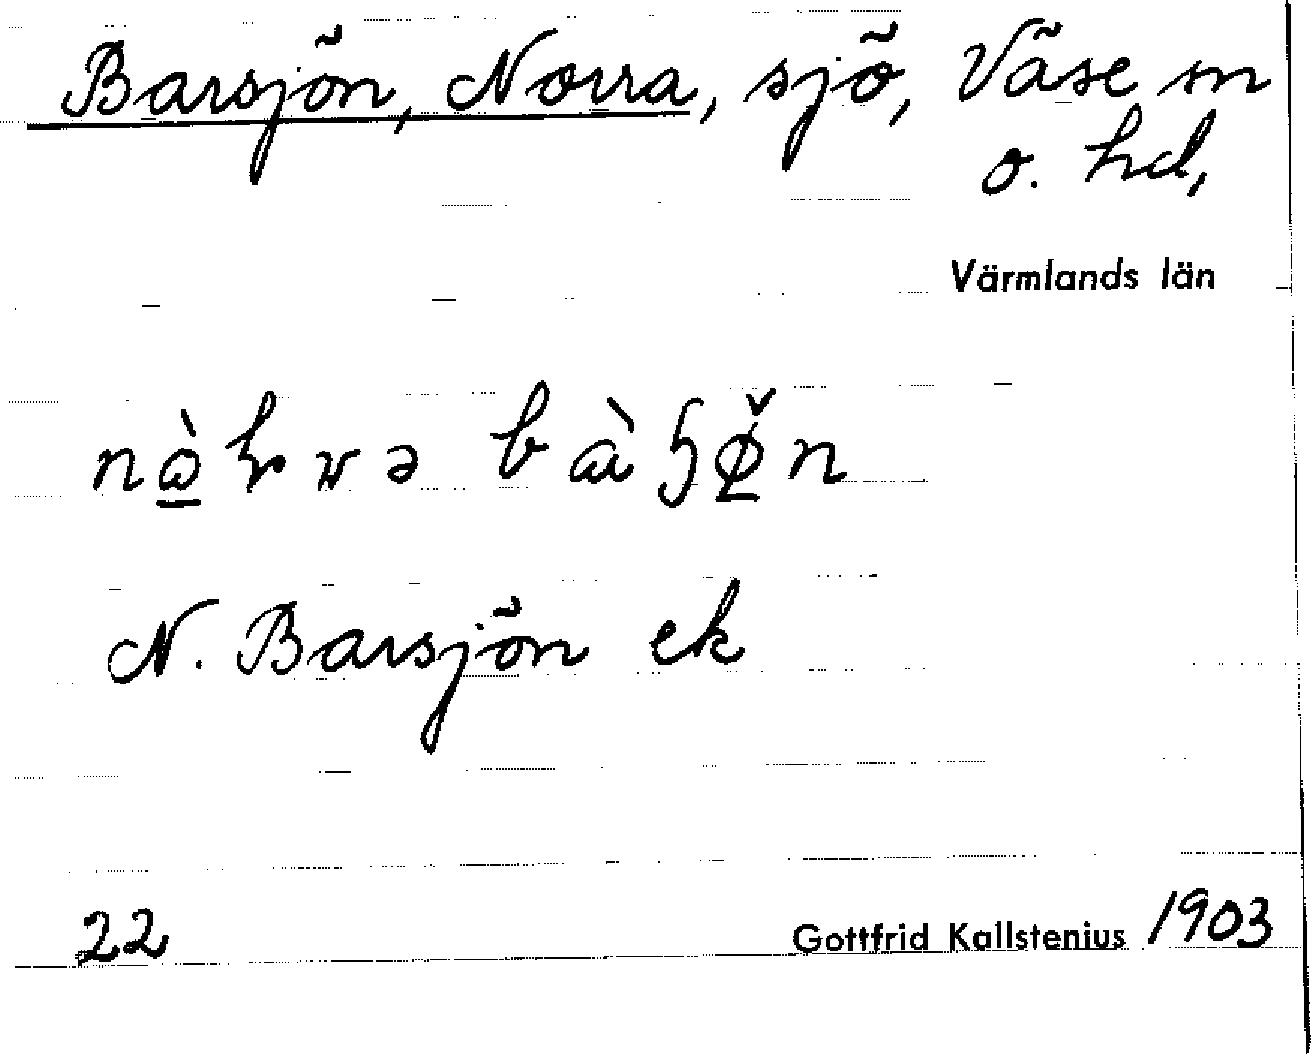 Barsjön, Norra, sjö, Väse sn
o. hd,
Värmlands län
N. Barsjön ek
22 Gottfrid Kallstenius 1903